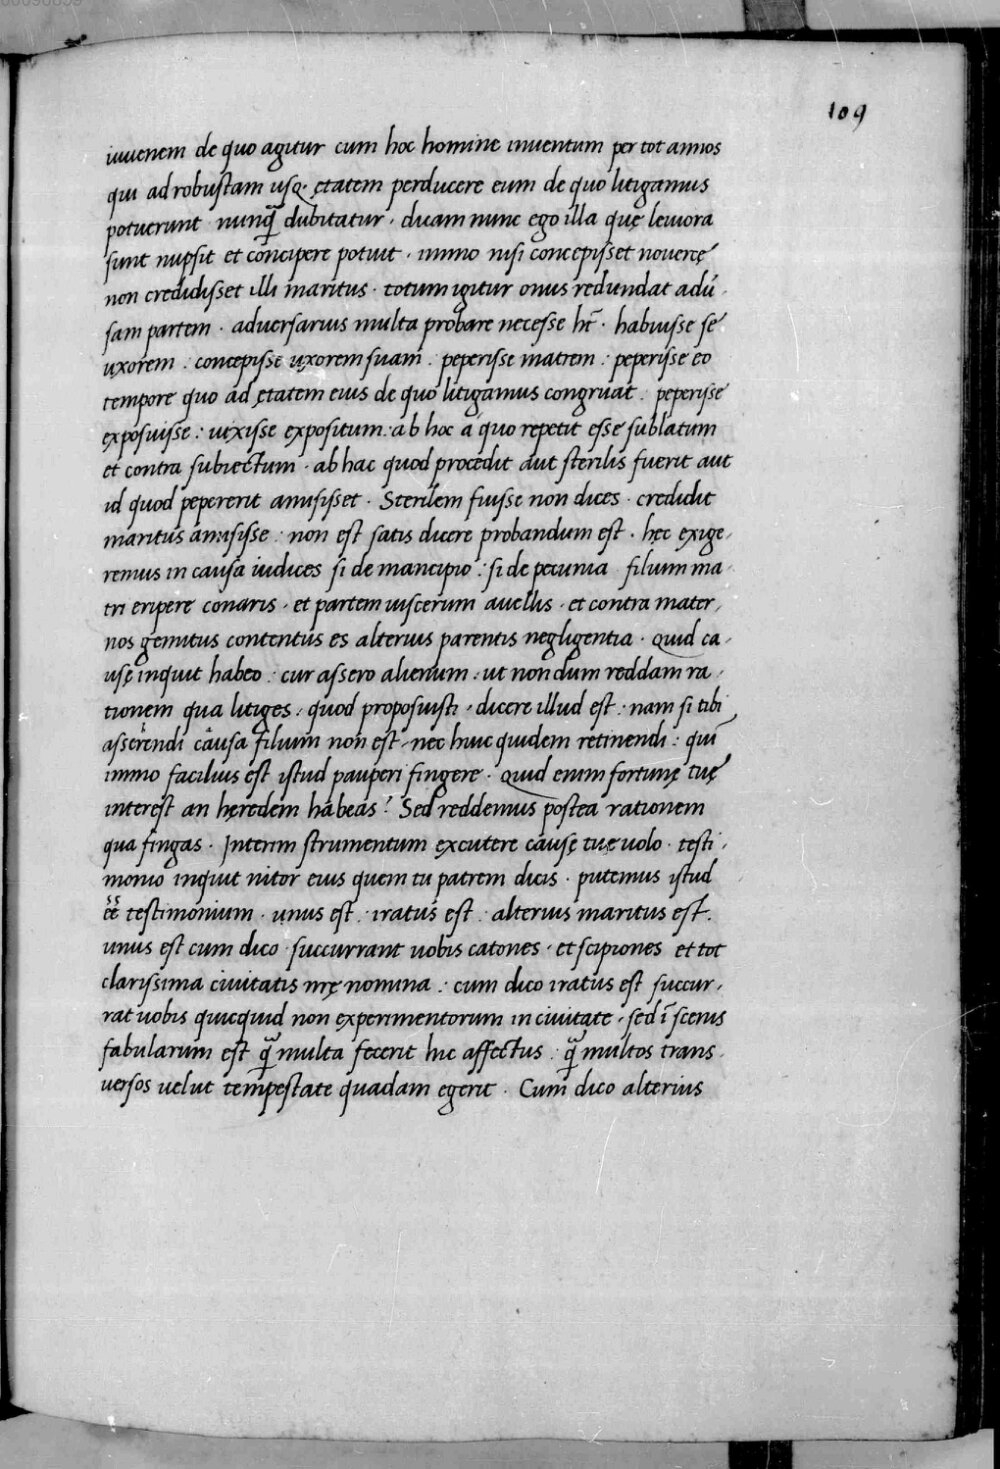 109
iuuenem de quo agitur cum hoc homine inuentum per tot annos
qui ad robustam usq. ętatem perducere eum de quo litigamus
potuerunt nunq̃ dubitatur . dicam nunc ego illa quę leuiora
sunt nupsit et concipere potuit . immo nisi concepisset nouercę
non credidisset illi maritus . totum igitur onus redundat adũ
sam partem . aduersarius multa probare necesse ht̃ . habuisse se
uxorem : concepisse uxorem suam . peperisse matrem : peperisse eo
tempore quo ad ętatem eius de quo litigamus congruat . peperisse
exposuisse : uixisse expositum : ab hoc a quo repetit esse sublatum
et contra subiectum . ab hac quod procedit aut sterilis fuerit aut
id quod pepererit amisisset . Sterilem fuisse non dices . credidit
maritus amisisse : non est satis dicere probandum est . hęc exige
remus in causa iudices si de mancipio : si de pecunia filium ma
tri eripere conaris . et partem uiscerum auellis . et contra mater
nos gemitus contentus es alterius parentis negligentia . quid ca
usę inquit habeo : cur assero alienum : ut non dum reddam ra
tionem qua litiges : quod proposuisti . dicere illud est : nam si tibi
asserendi causa filium non est . nec huic quidem retinendi : quĩ
immo facilius est istud pauperi fingere . quid enim fortunę tuę
interest an hęredem habeas ? Sed reddemus postea rationem
qua fingas . Interim strumentum excutere causę tuę uolo . testi
monio inquit nitor eius quem tu patrem dicis . putemus istud
eẽ testimonium . unus est : iratus est : alterius maritus est .
unus est cum dico succurrant uobis catones . et scipiones et tot
clarissima ciuitatis nrę nomina : cum dico iratus est succur
rat uobis quicquid non experimentorum in ciuitate . sed ĩ scenis
fabularum est q̃ multa fecerit hic affectus : q̃ multos trans
uersos uelut tempestate quadam egerit . Cum dico alterius